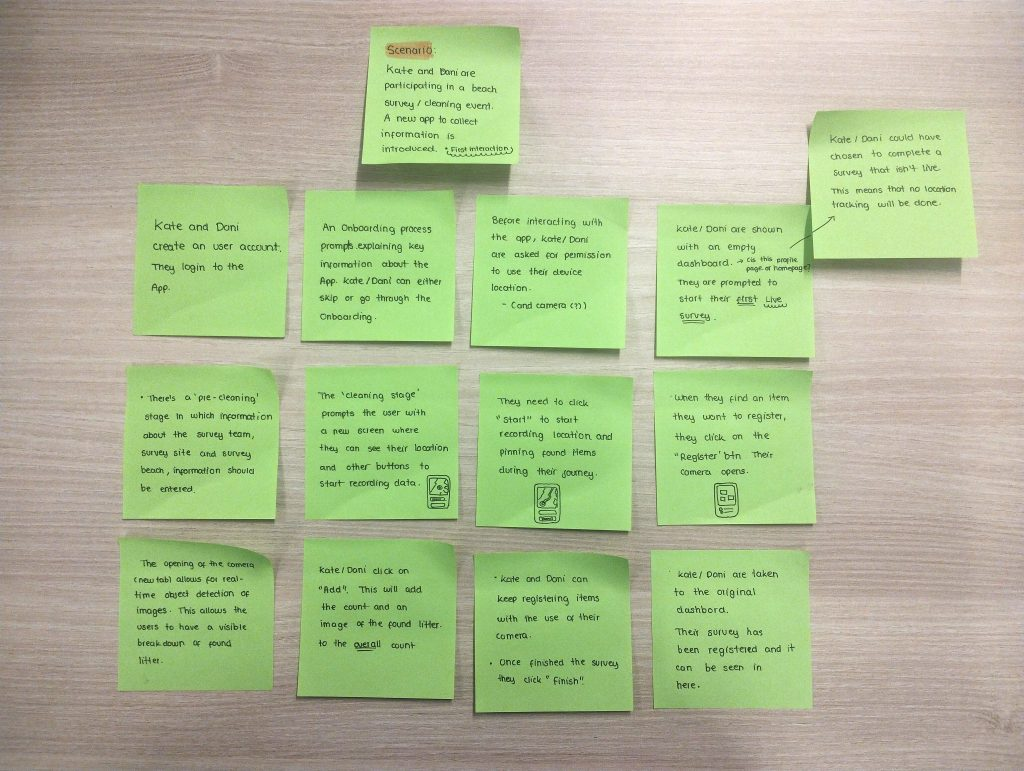 Scenario:
Kate and Dani are
participating in a beach
survey / cleaning event.
A new app to collect
information is
introduced. * First interaction
Kate / Dani could have
chosen to complete a
survey that isn't live.
This means that no location
tracking will be done.
Kate and Dani
create an user account.
They login to the
App.
An Onboarding process
prompts explaining key
information about the
App. Kate / Dani can either
skip or go through the
Onboarding.
Before interacting with
the app, Kate / Dani
are asked for permission
to use their device
location.
- (and camera (?))
Kate / Dani are shown
with an empty
dashboard. → (is this profile
page or homepage?
They are prompted to
start their first Live
survey.
• There's a 'pre-cleaning'
stage in which information
about the survey team,
survey site and survey
beach, information should
be entered.
The 'cleaning stage'
prompts the user with
a new screen where
they can see their location
and other buttons to
start recording data.
They need to click
"Start" to start
recording location and
pinning found items
during their journey.
· When they find an item
they want to register,
they click on the
"Register' btn Their
camera opens.
The opening of the camera
(new tab) allows for real-
time object detection of
images. This allows the
users to have a visible
breakdown of found
litter.
Kate / Dani click on
"Add". This will add
the count and an
image of the found litter.
to the overall count
• Kate and Dani can
keep registering items
with the use of their
camera.
• Once finished the survey
they click "Finish".
Kate / Dani are taken
to the original
dashbord.
Their survey has
been registered and it
can be seen in
here.